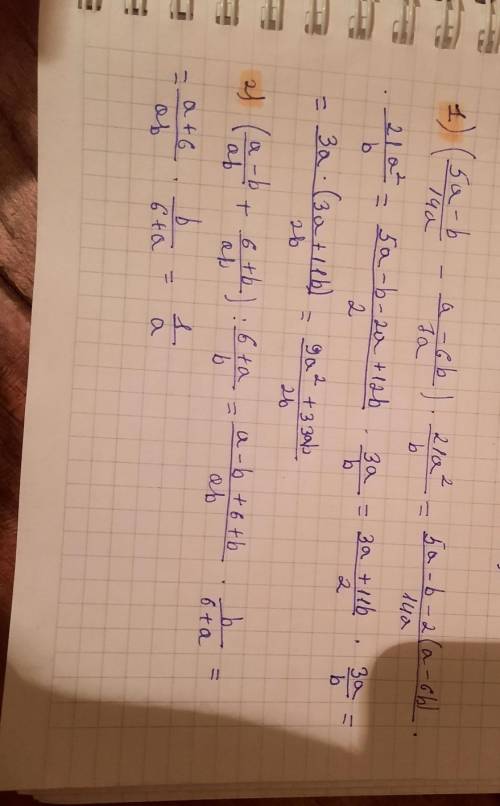 1) (5a-b/14a - a-6b/7a) · 21a²/b = 5a-b-2(a-6b)/14a ·
· 21a²/b = 5a-b-2a+12b/2 · 3a/b = 3a+11b/2 · 3a/b =
= 3a·(3a+11b)/2b = 9a²+33ab/2b
2) (a-b/ab + 6+b/ab) : 6+a/b = a-b+6+b/ab · b/6+a =
= a+6/ab · b/6+a = 1/a